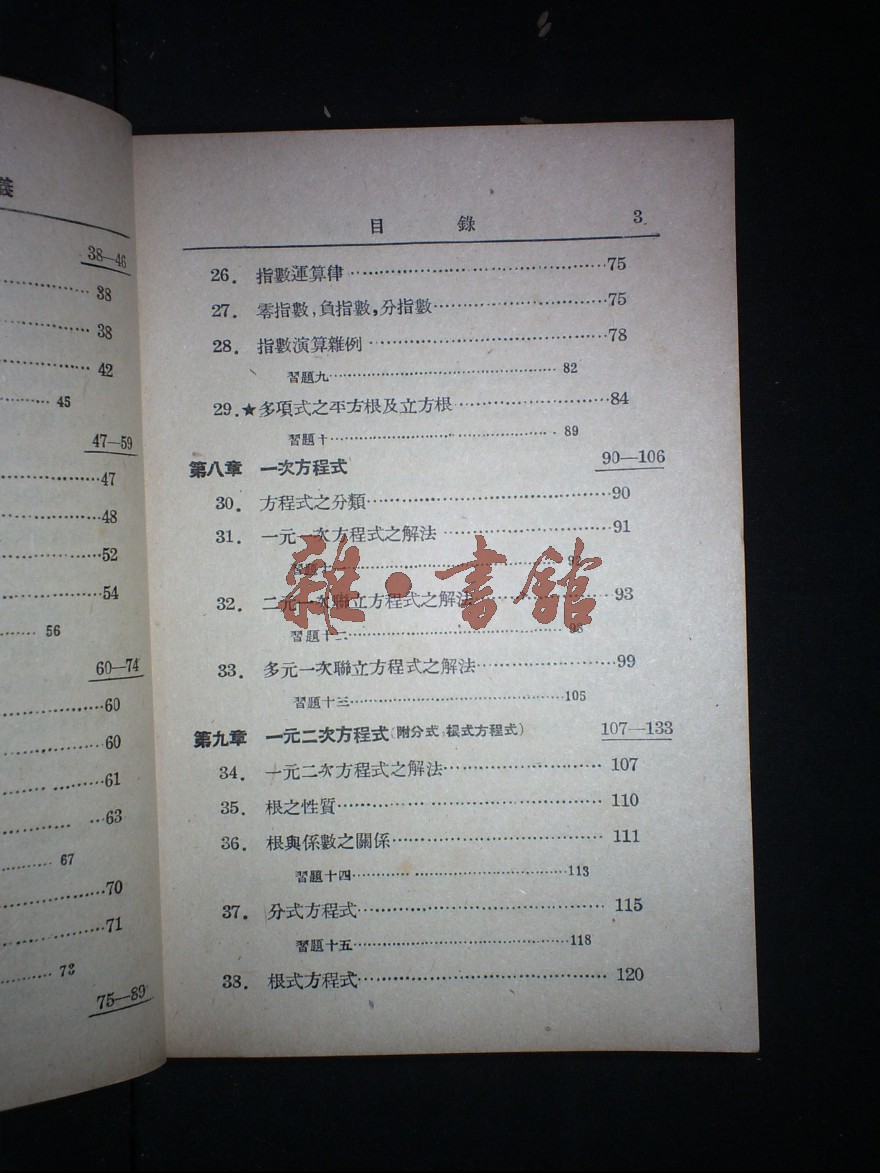 義
38—46
38
38
42
45
47—59
47
48
52
54
56
60—74
60
60
61
63
67
70
71
73
75—89
目 錄 3
26. 指數運算律 75
27. 零指數,負指數,分指數 75
28. 指數演算雜例 78
習題九 82
29.★多項式之平方根及立方根 84
習題十 89
第八章 一次方程式 90—106
30. 方程式之分類 90
31. 一元一次方程式之解法 91
習題十一
32. 二元一次聯立方程式之解法 93
習題十二 98
33. 多元一次聯立方程式之解法 99
習題十三 105
第九章 一元二次方程式(附分式,根式方程式) 107—133
34. 一元二次方程式之解法 107
35. 根之性質 110
36. 根與係數之關係 111
習題十四 113
37. 分式方程式 115
習題十五 118
38. 根式方程式 120
雜·書館